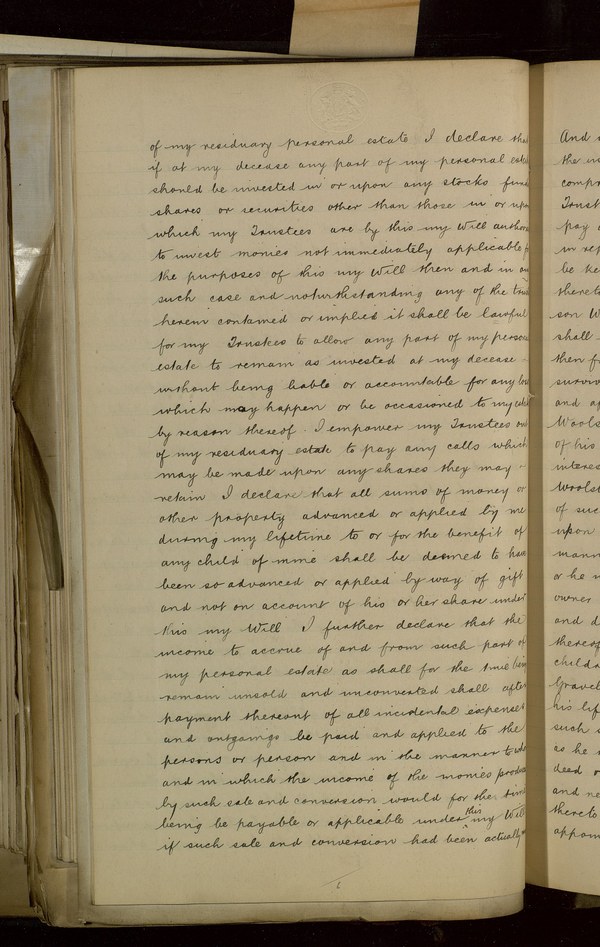 of my residuary personal estate I declare tha
if at my decease any part of my personal esta
should be invested in or upon any stocks fun
shares or securities other than those in or upo
which my Trustees are by this my Will autho
to invest monies not immediately applicable
the purposes of this my Will then and in an
such case and notwithstanding any of the trus
herein contained or implied it shall be lawful
for my Trustees to allow any part of my person
estate to remain as invested at my decease -
without being liable or accountable for any los
which may happen or be occasioned to my esta
by reason thereof I empower my Trustees out
of my residuary estate to pay any calls which
may be made upon any shares they may -
retain I declare that all sums of money or
other property advanced or applied by me
during my lifetime to or for the benefit of
any child of mine shall be deemed to have
been so advanced or applied by way of gift
and not on account of his or her share under
this my Will I further declare that the
income to accrue of and from such part of
my personal estate as shall for the time bein
remain unsold and unconverted shall after
payment thereout of all incidental expenses
and outgoings be paid and applied to the
persons or person and in the manner to who
and in which the income of the monies produ
by such sale and conversion would for the time
being be payable or applicable under this my Will
if such sale and conversion had been actually
And
the
compr
Trust
pay
in re
be ke
theret
son W
shall
then f
surviv
and a
Wools
of his
interes
Woolst
of suc
upon
mann
or he
owner
and d
thereof
childr
Gravel
his lif
such s
as he
deed o
and ne
thereto
appoin